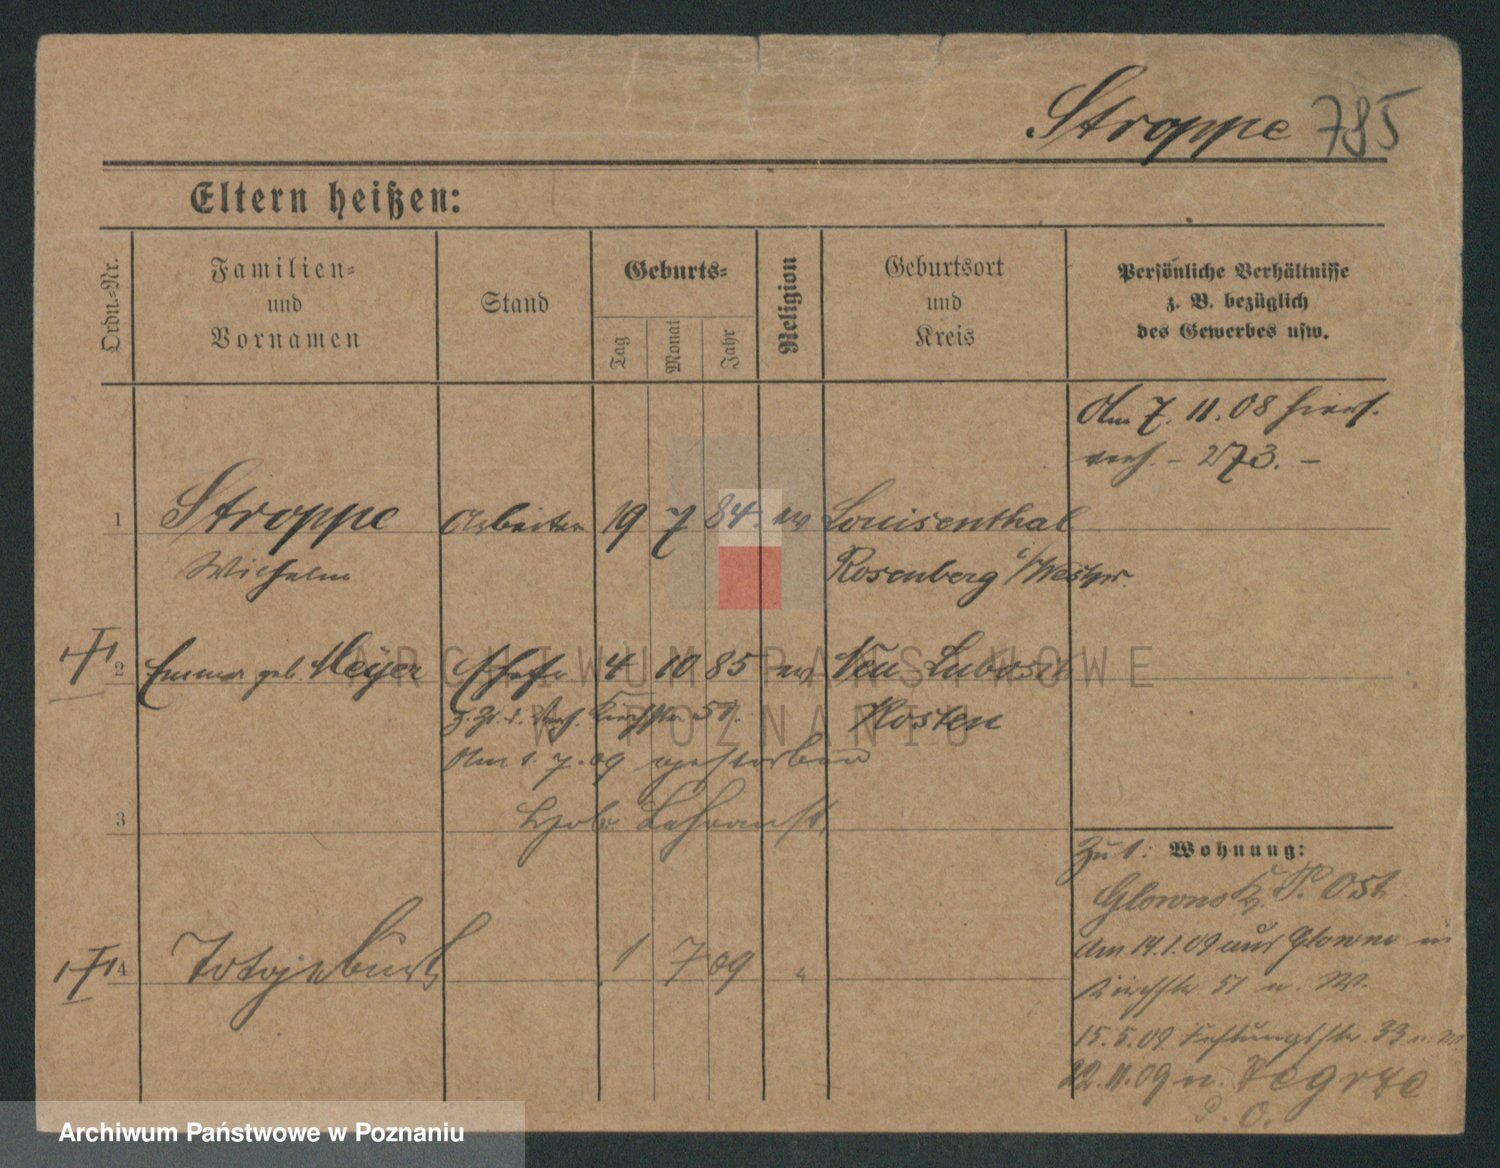 Stroppe 785
Eltern heißen:
Ordn.=Nr.
Familien=
und
Vornamen
Stand
Geburts=
Tag
Monat
Jahr
Religion
Geburtsort
und
Kreis
Persönliche Verhältnisse
z. B. bezüglich
des Gewerbes usw.
Am 7. 11. 08 hiers.
verh. – 273. –
1 Stroppe Arbeiter 19 7 84. ev Louisenthal
Wilhelm Rosenberg i/Westpr.
2 Emma geb. Meyer Ehefr 4 10 85 ev Neu Lubosch
Kirchstr. 51. Kosten
Am 1. 7. 09 gestorben
3 Hebr. Lehranst.
Zu 1: Wohnung:
Glowno P. Ost.
Am 14.1.09 aus Glowno in
Kirchstr. 51 n. W.
4 Totgeburt 1 7 09 "
15.5.09. Festungsstr. 33
22.11.09 n. Zegrze
P. O.
ARCHIWUM PAŃSTWOWE
W POZNANIU
Archiwum Państwowe w Poznaniu